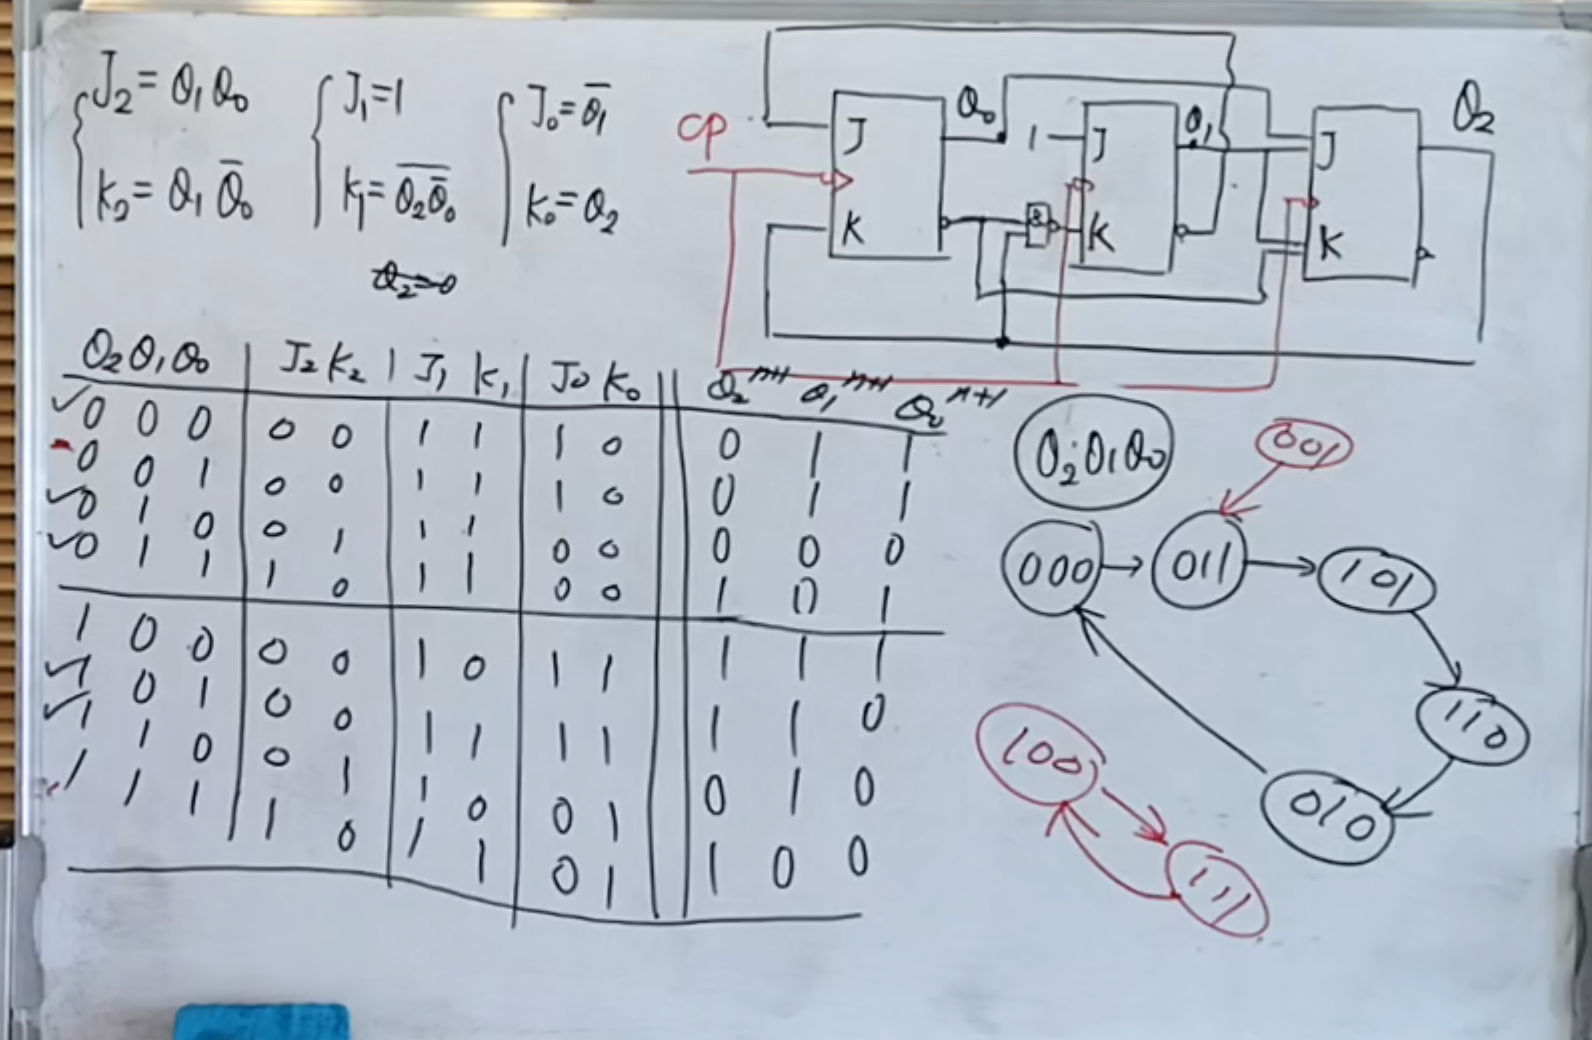 J₂ = Q₁Q₀
K₂ = Q₁Q̅₀
J₁=1
K₁= \overline{Q₂Q̅₀}
J₀= \overline{Q₁}
K₀=Q₂
CP
J
K
Q₀
&
1
J
K
Q₁
J
K
Q₂
Q₂Q₁Q₀ | J₂ K₂ | J₁ K₁ | J₀ K₀ || Q₂ⁿ⁺¹ Q₁ⁿ⁺¹ Q₀ⁿ⁺¹
✓0 0 0 | 0 0 | 1 1 | 1 0 || 0 1 1
0 0 1 | 0 0 | 1 1 | 1 0 || 0 1 1
✓0 1 0 | 0 1 | 1 1 | 0 0 || 0 0 0
✓0 1 1 | 1 0 | 1 1 | 0 0 || 1 0 1
1 0 0 | 0 0 | 1 0 | 1 1 || 1 1 1
✓1 0 1 | 0 0 | 1 1 | 1 1 || 1 1 0
✓1 1 0 | 0 1 | 1 0 | 0 1 || 0 1 0
1 1 1 | 1 0 | 1 1 | 0 1 || 1 0 0
Q₂Q₁Q₀
001
000
011
101
110
010
100
111